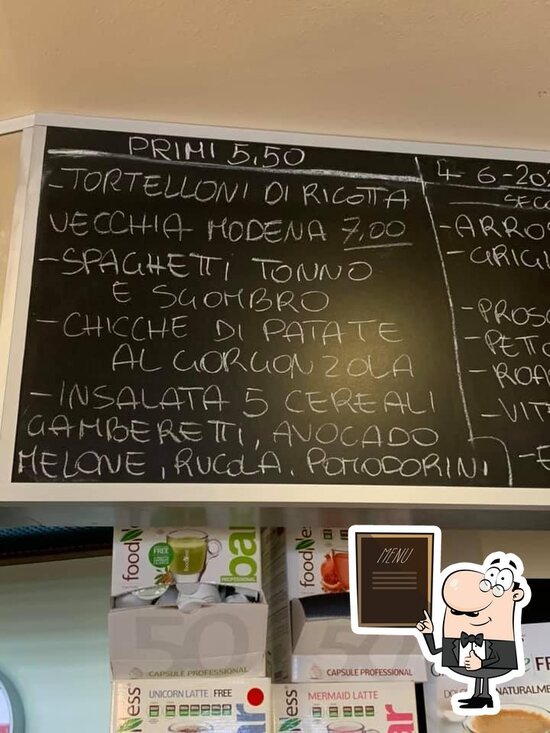 PRIMI 5,50
-TORTELLONI DI RICOTTA
VECCHIA MODENA 7,00
-SPAGHETTI TONNO
E SGOMBRO
-CHICCHE DI PATATE
AL GORGONZOLA
-INSALATA 5 CEREALI
GAMBERETTI, AVOCADO
MELONE, RUCOLA, POMODORINI
4-6-202
SEC
-ARROS
-GRIGL
-PROSC
-PETTO
-ROA
-VIT
-E
foodNess
FREE
bar
PROFESSIONAL
50
CAPSULE PROFESSIONAL
foodNess
CAPSULE PROFESSIONAL
MENU
UNICORN LATTE FREE
MERMAID LATTE
NATURALME